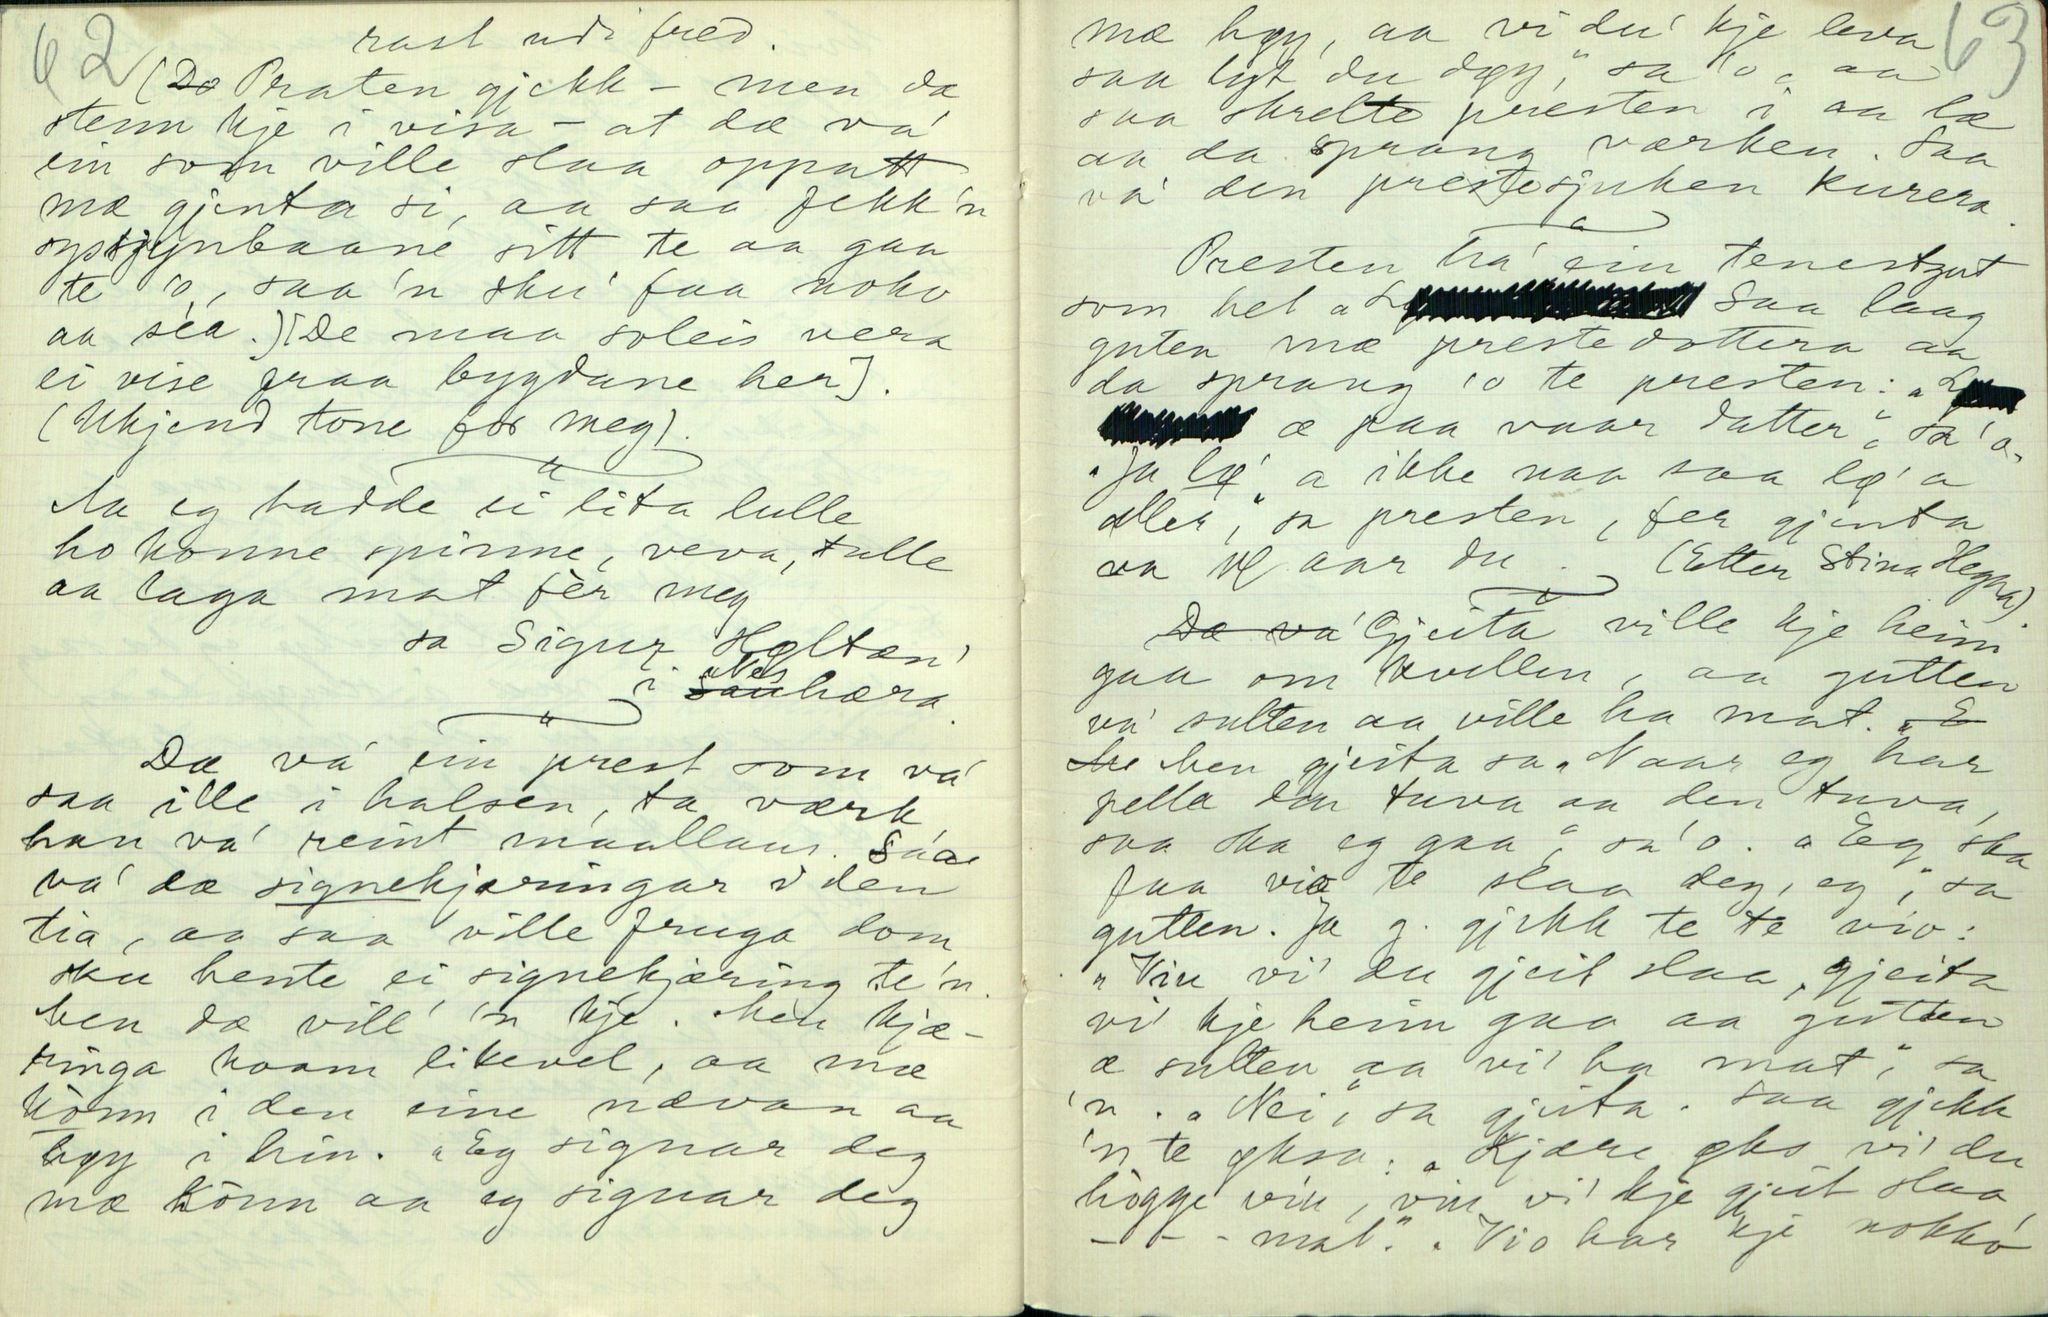 62
rast udi fred.
(Do Praten gjekk - men da
stenn kje i visa - at dæ va'
ein som ville slaa oppatt
mæ gjenta si, aa saa fekk'n
syssjynbaane sitt te aa gaa
te 'o, saa 'n sku' faa noko
aa sea.) [De maa soleis vera
ei vise fraa bygdane her].
(Ukjend tone for meg).
Aa eg hadde ei lita lulle
ho konne spinne, veva, tulle
aa laga mat fèr meg
sa Sigur Høltæn'
i Nes
Sauhæra.
Dæ va' ein prest som va'
saa ille i halsen, ta værk
han va' reint maallaus. Sáa
va' dæ signekjæringar i den
tia, aa saa ville fruga dom
sku hente ei signekjæring te'n.
Men dæ vill' 'n kje. Men kjæ-
ringa koom likevel, aa mæ
könn i den eine nævan aa
høy i hin. "Eg signar deg
mæ könn aa eg signar deg
63
mæ høy, aa vi du' kje leva
saa lyt du døy," sa 'o, aa
saa skrelte presten i aa læ
aa da sprang værken. Saa
va' den prestesjuken kurera.
Presten ha' ein tenestgut
som het Saa laag
guten mæ prestedottera aa
da sprang 'o te presten: "
æ paa vaar datter", sa 'o.
"Ja læ' a ikke naa saa læ' a
aller," sa presten, fer gjenta
va 14 aar du. (Etter Stina Hegna)
Dæ va' Gjeita ville kje heim
gaa om kvellen, aa gutten
va' sulten aa ville ha mat. "E
Men gjeita sa "Naar eg har
pella den tuva aa den tuva,
saa ska eg gaa", sa'o. "Eg ska
faa vio te slaa deg, eg", sa
gutten. Ja g. gjekk te te vio:
"Viu vi' du gjeit slaa, gjeita
vi' kje heim gaa aa gutten
æ sulten aa vi' ha mat", sa
'n. "Nei", sa gjeita. Saa gjekk
'n te øksa: "Kjære øks vi' du
högge viu, viu vi' kje gjeit slaa,
- - - mat." "Vio har kje nokko